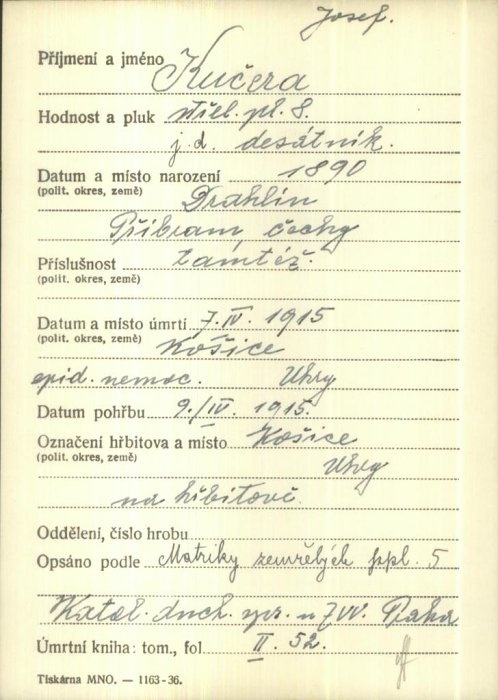 Josef.
Příjmení a jméno Kučera
Hodnost a pluk střel. pl. 8.
j. d. desátník.
Datum a místo narození 1890
(polit. okres, země) Drahlín
Příbram čechy
Příslušnost tamtéž.
(polit. okres, země)
Datum a místo úmrtí 7. IV. 1915
(polit. okres, země) Košice
epid. nemoc. Uhry
Datum pohřbu 9./IV. 1915.
Označení hřbitova a místo Košice
(polit. okres, země) Uhry
na hřbitově
Oddělení, číslo hrobu
Opsáno podle Matriky zemřelých ppl. 5
Katol. duch. spr. u ZVV. Praha
Úmrtní kniha: tom., fol II. 52.
Tiskárna MNO. — 1163-36.